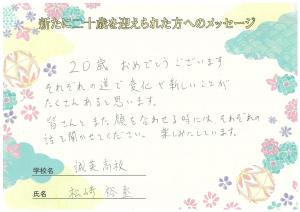 新たに二十歳を迎えられた方へのメッセージ
20歳 おめでとうございます
それぞれの道で変化や新しいことが
たくさんあると思います。
皆さんとまた顔を合わせる時には、それぞれの
話を聞かせてください。楽しみにしています。
学校名 誠英高校
氏名 松崎 裕